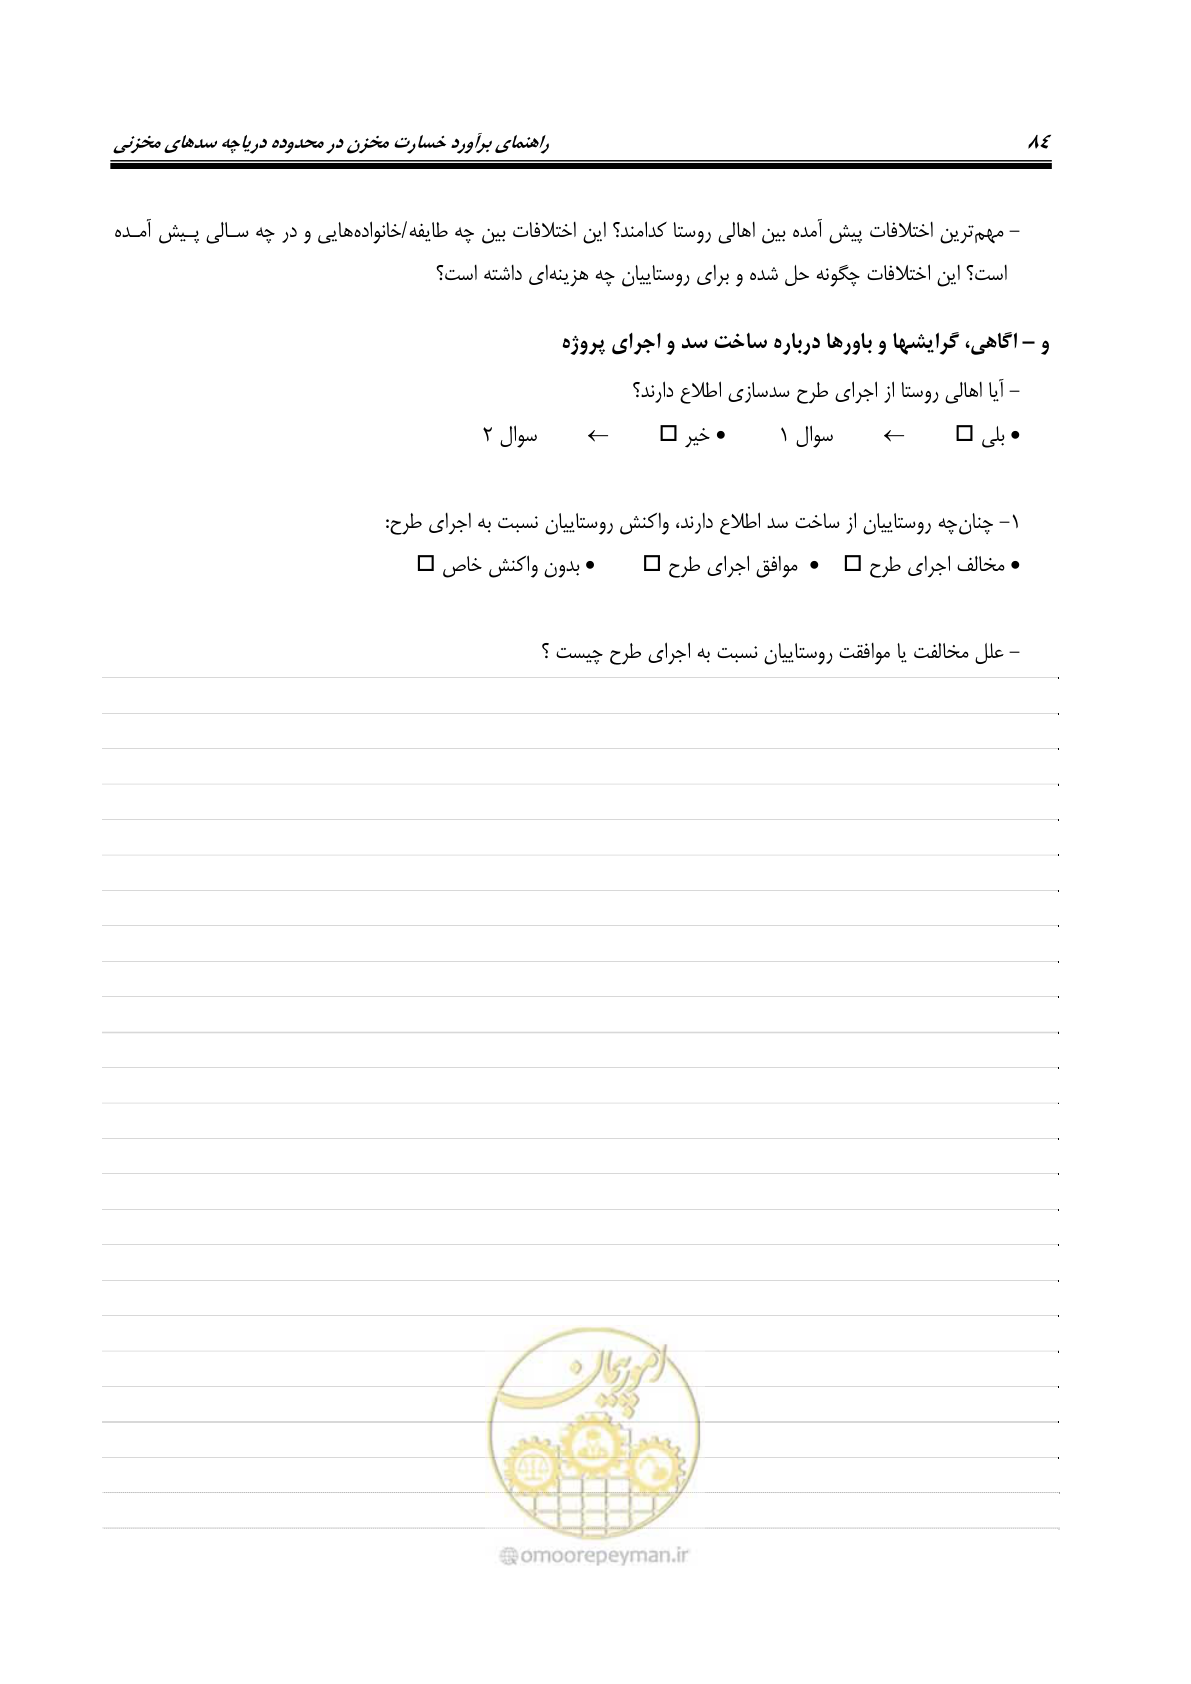 ۸٤ راهنمای برآورد خسارت مخزن در محدوده دریاچه سدهای مخزنی
- مهم‌ترین اختلافات پیش آمده بین اهالی روستا کدامند؟ این اختلافات بین چه طایفه/خانواده‌هایی و در چه سـالی پـیش آمـده
است؟ این اختلافات چگونه حل شده و برای روستاییان چه هزینه‌ای داشته است؟
و - اگاهی، گرایشها و باورها درباره ساخت سد و اجرای پروژه
- آیا اهالی روستا از اجرای طرح سدسازی اطلاع دارند؟
• بلی □ ← سوال ۱ • خیر □ ← سوال ۲
۱- چنان‌چه روستاییان از ساخت سد اطلاع دارند، واکنش روستاییان نسبت به اجرای طرح:
• مخالف اجرای طرح □ • موافق اجرای طرح □ • بدون واکنش خاص □
- علل مخالفت یا موافقت روستاییان نسبت به اجرای طرح چیست ؟
امور پیمان
omoorepeyman.ir